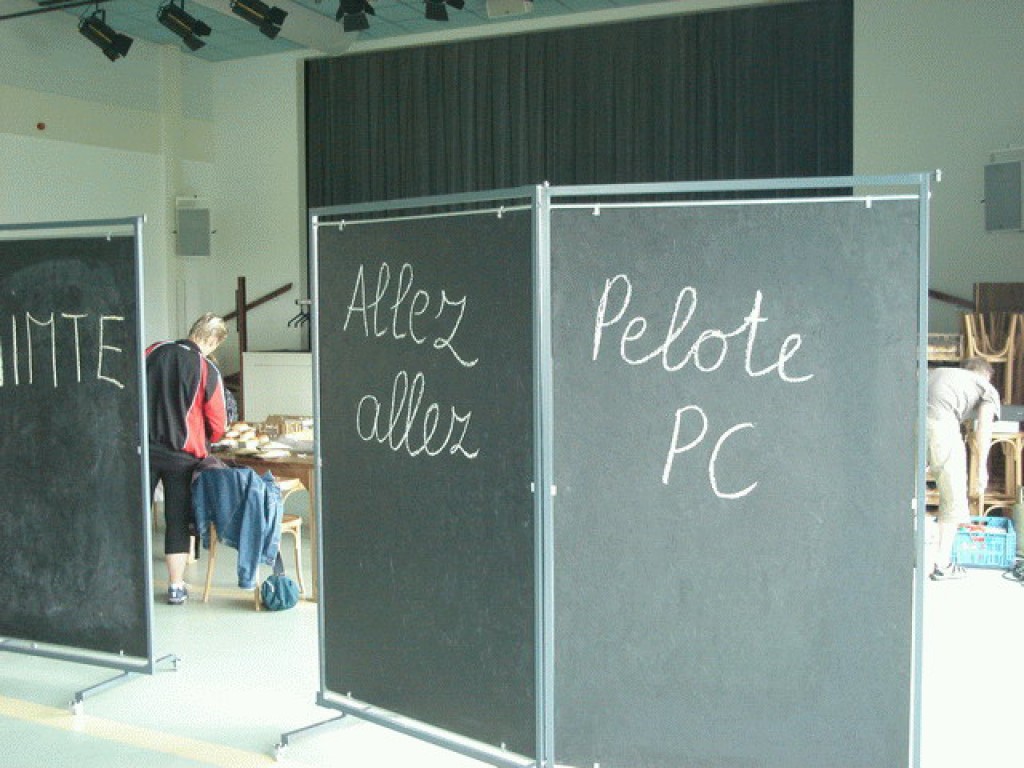 IMTE
Allez
allez
Pelote
PC